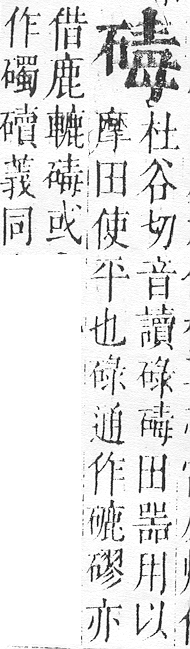 碡
杜谷切音讀碌碡田噐用以
摩田使平也碌通作䃙磟亦
借鹿轆碡或
作義同